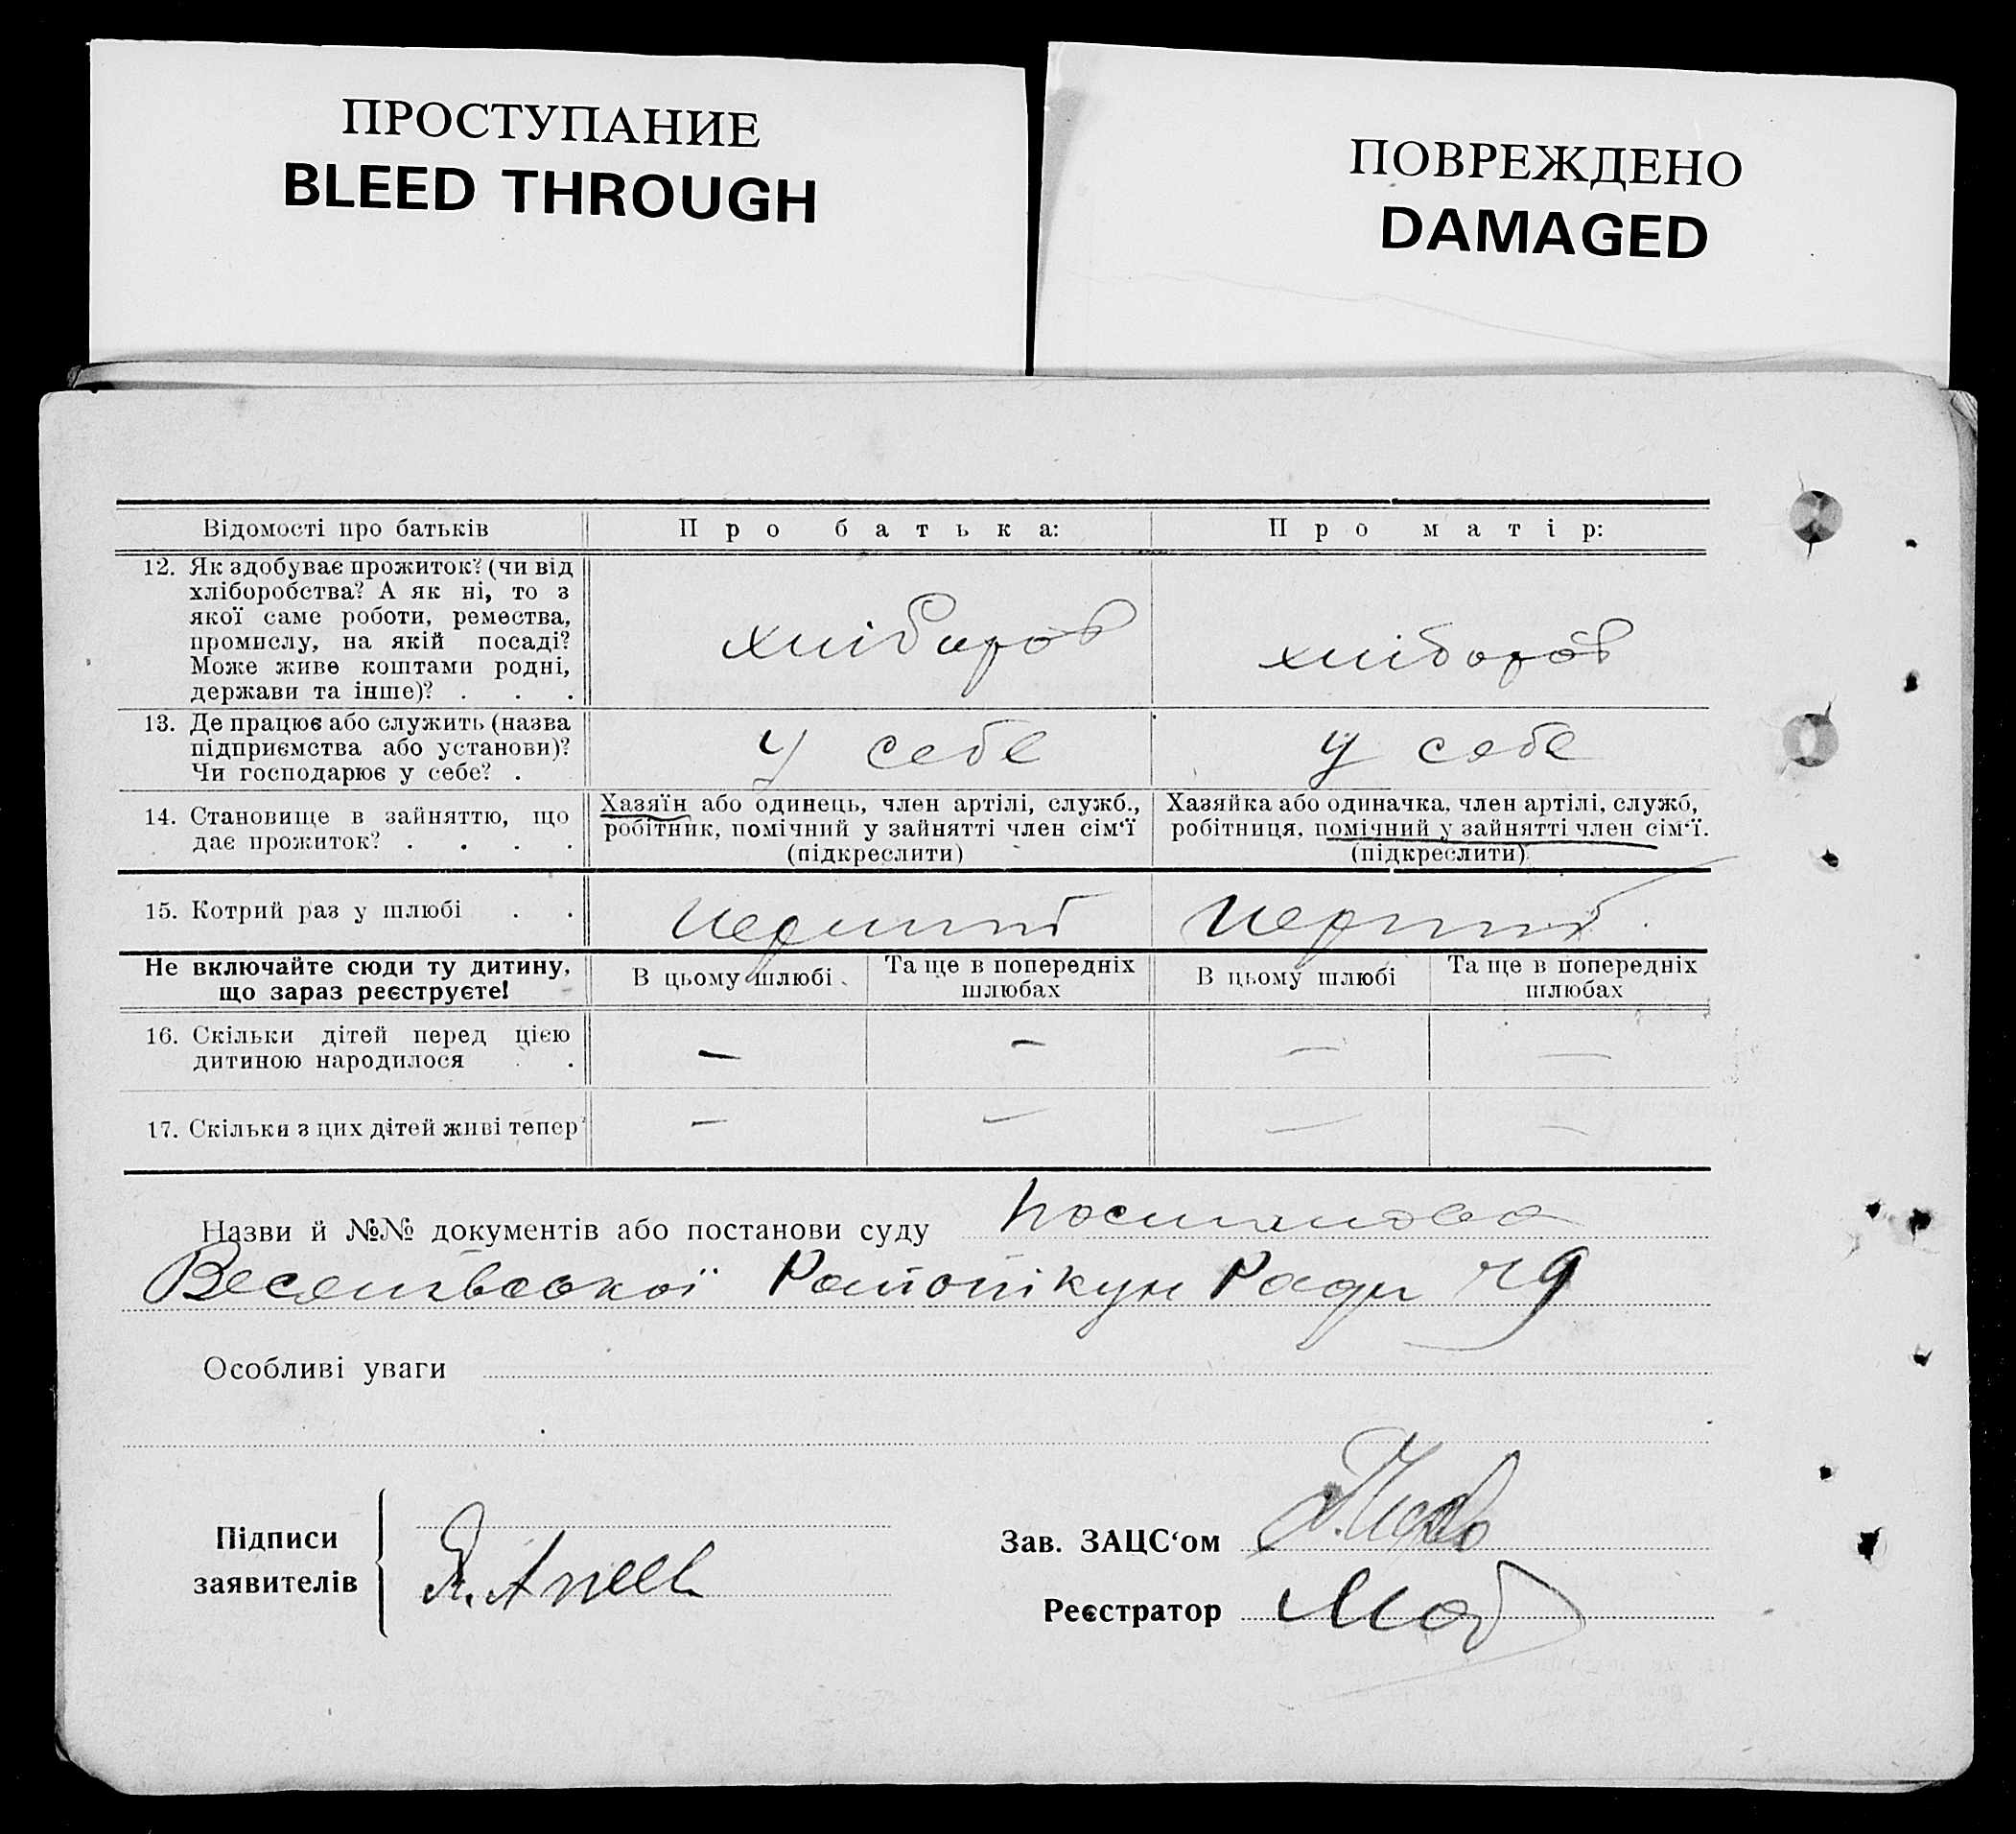 ПРОСТУПАНИЕ
BLEED THROUGH
ПОВРЕЖДЕНО
DAMAGED
Відомості про батьків
Про батька:
Про матір:
12. Як здобуває прожиток? (чи від
хліборобства? А як ні, то з
якої саме роботи, ремества,
промислу, на якій посаді?
Може живе коштами родні,
держави та інше)? . . .
хлібороб
хлібороб
13. Де працює або служить (назва
підприємства або установи)?
Чи господарює у себе? .
у себе
у себе
14. Становище в зайняттю, що
дає прожиток? . . . .
Хазяїн або одинець, член артілі, служб.,
робітник, помічний у зайнятті член сім'ї
(підкреслити)
Хазяйка або одиначка, член артілі, служб,
робітниця, помічний у зайнятті член сім'ї.
(підкреслити)
15. Котрий раз у шлюбі . .
перший
перший
Не включайте сюди ту дитину,
що зараз реєструєте!
В цьому шлюбі
Та ще в попередніх
шлюбах
В цьому шлюбі
Та ще в попередніх
шлюбах
16. Скільки дітей перед цією
дитиною народилося .
— — — —
17. Скільки з цих дітей живі тепер
— — — —
Назви й №№ документів або постанови суду Постанова
Ради
Особливі уваги
Підписи
заявителів
Зав. ЗАЦС'ом
Реєстратор